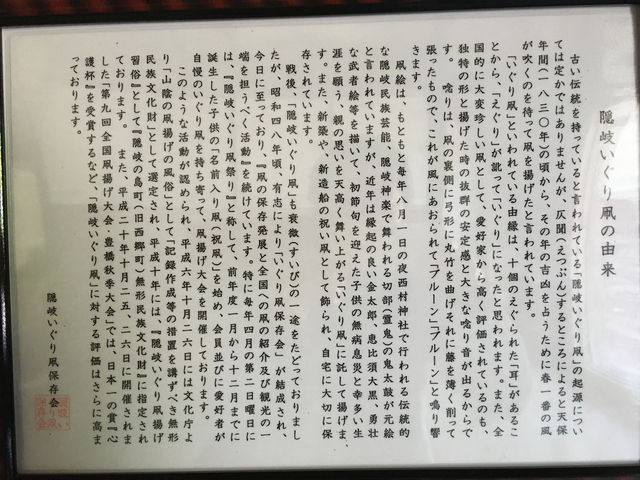 隠岐いぐり凧の由来
古い伝統を持っていると言われている「隠岐いぐり凧」の起源につい
ては定かではありませんが、仄聞(えつぶん)するところによると天保
年間(一八三〇年)の頃から、その年の吉凶を占うために春一番の風
が吹くのを待って凧を揚げたと言われています。
「いぐり凧」といわれている由縁は、十個のえぐられた「耳」があるこ
とから、「えぐり」が訛って「いぐり」になったと思われます。また、全
国的に大変珍しい凧として、愛好家から高く評価されているのも、
独特の形と揚げた時の抜群の安定感と大きな唸り音が出るからで
す。唸りは、凧の裏側に弓形に丸竹を曲げそれに藤を薄く削って
張ったもので、これが風にあおられて「ブルーン」「ブルーン」と鳴り響
きます。
凧絵は、もともと毎年八月一日の夜西村神社で行われる伝統的
な隠岐民族芸能、隠岐神楽で舞われる切部(霊鬼)の鬼太鼓が元絵
と言われていますが、近年は縁起の良い金太郎、恵比須大黒、勇壮
な武者絵等を描いて、初節句を迎えた子供の無病息災と幸多い生
涯を願う、親の思いを天高く舞い上がる「いぐり凧」に託して揚げま
す。また、新築や、新造船の祝い凧として飾られ、自宅に大切に保
存されています。
戦後、「隠岐いぐり凧」も衰微(すいび)の一途をたどっておりまし
たが、昭和四八年頃、有志により「いぐり凧保存会」が結成され、
今日に至っており、『凧の保存発展と全国への凧の紹介及び観光の一
端を担うべく活動』を続けています。特に毎年四月の第二日曜日に
は、『隠岐いぐり凧祭り』と称して、前年度一月から十二月までに
誕生した子供の「名前入り凧(祝凧)」を始め、会員並びに愛好者が
自慢のいぐり凧を持ち寄って、凧揚げ大会を開催しております。
このような活動が認められ、平成六年十月二六日には文化庁よ
り「山陰の凧揚げの風俗」として「記録作成等の措置を講ずべき無形
民族文化財」として選定され、平成十年には、『隠岐いぐり凧揚げ
習俗』として『隠岐の島町(旧西郷町)無形民族文化財』に指定され
ております。また、平成二十年十月二五、二六日に開催されま
した「第九回全国凧揚げ大会・豊橋秋季大会」では、日本一の賞『心
護杯』を受賞するなど、「隠岐いぐり凧」に対する評価はさらに高ま
っております。
隠岐いぐり凧保存会